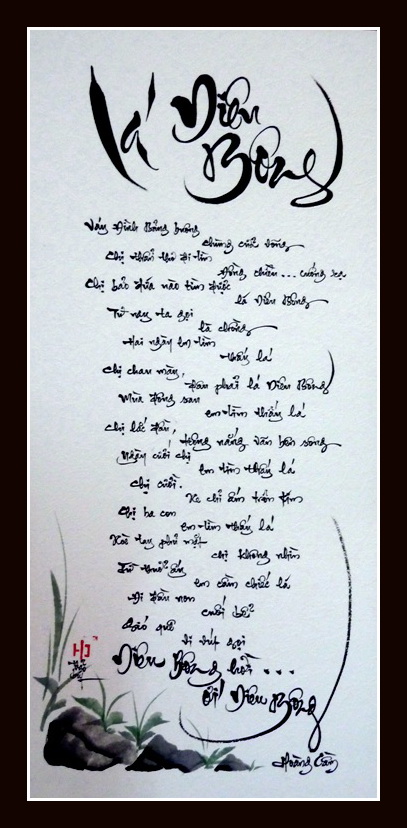 Lá Diêu
Bông
Váy Đình Bảng buông
chùng cửa võng
Chị thẩn thơ đi tìm
Đồng chiều ... cuống rạ
Chị bảo đứa nào tìm được
lá Diêu Bông
Từ nay ta gọi
là chồng
Hai ngày em tìm
thấy lá
Chị chau mày,
đâu phải lá Diêu Bông
Mùa đông sau
em tìm thấy lá
Chị lắc đầu,
trông nắng vãn bên sông
Ngày cưới chị
em tìm thấy lá
Chị cười.
Xe chỉ ấm trôn kim
Chị ba con
em tìm thấy lá
Xòe tay phủ mặt
chị không nhìn
Từ thuở ấy
em cầm chiếc lá
Đi đầu non
cuối bể
Gió quê
vi vút gọi
Diêu Bông hời ...
ới Diêu Bông
Hoàng Cầm